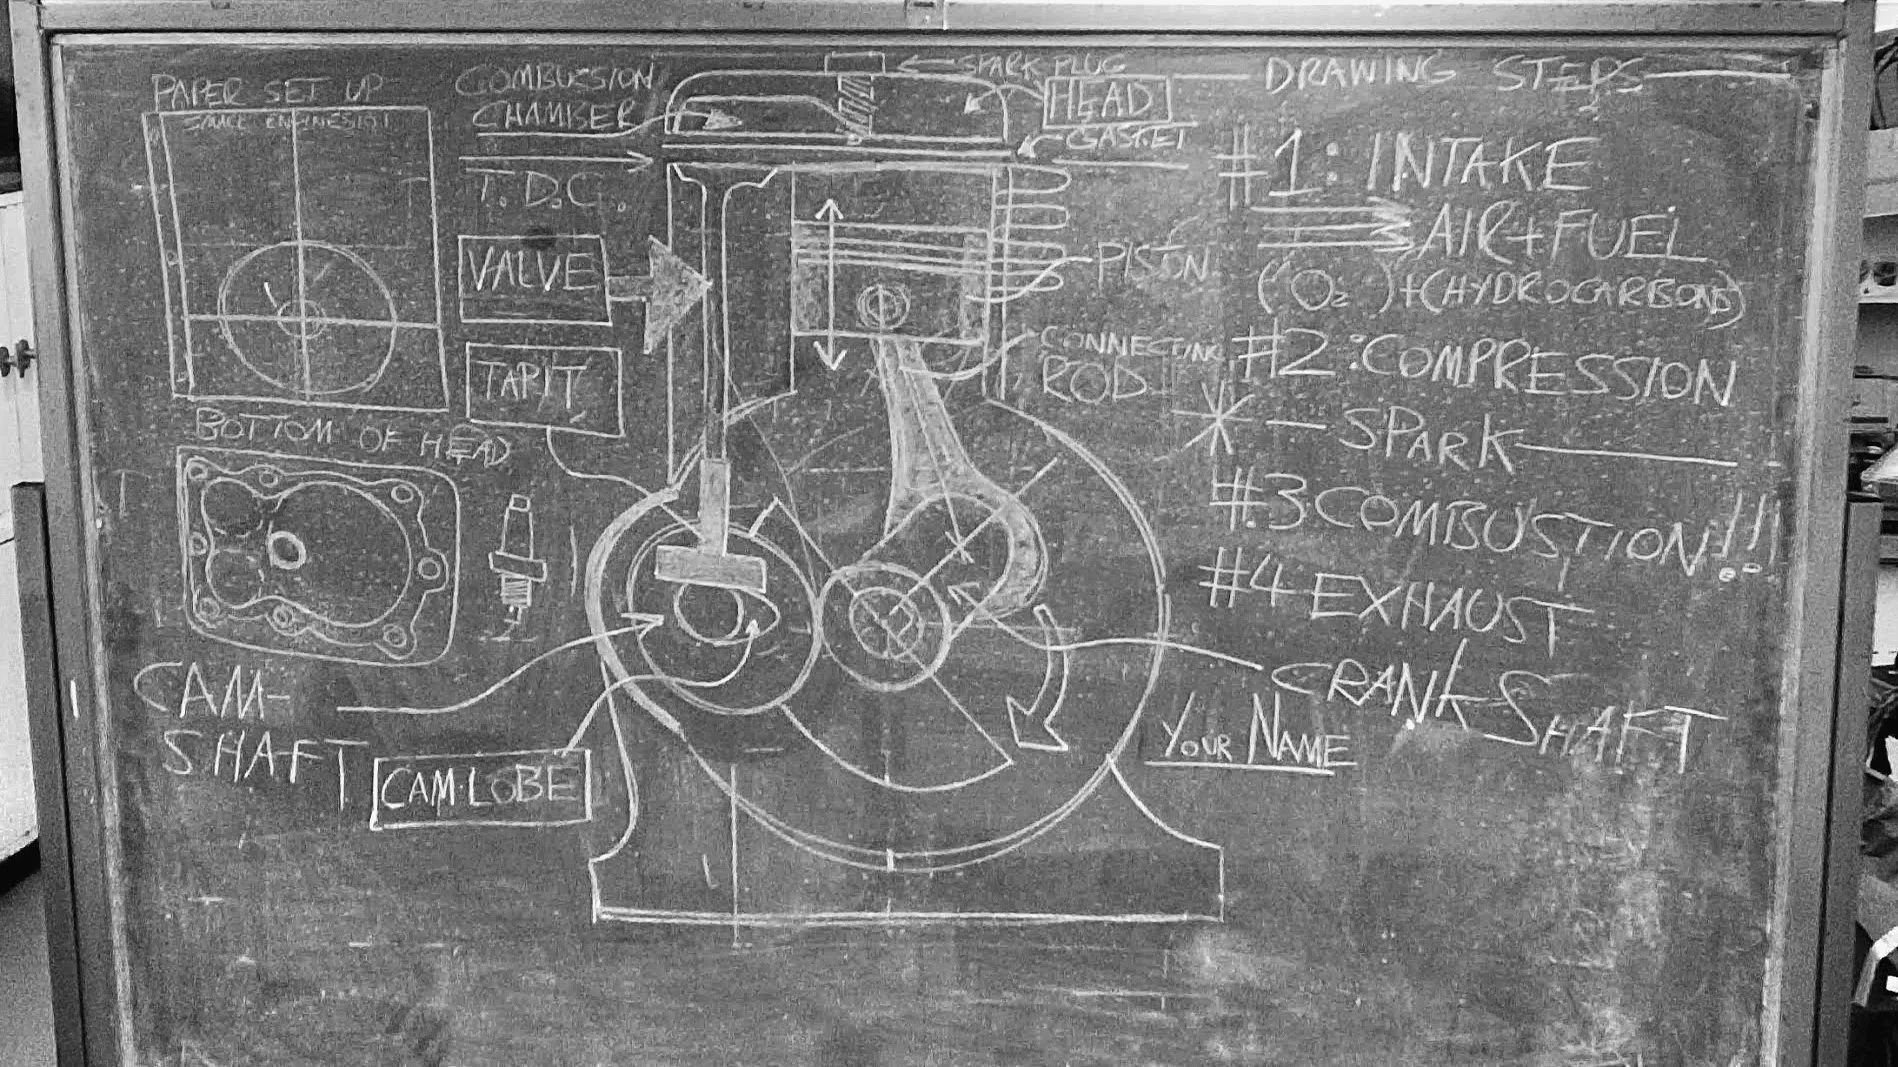 PAPER SET UP
SMALL ENGINES 101
COMBUSSION
CHAMBER
SPARK PLUG
HEAD
GASKET
T.D.C.
VALVE
TAPIT
PISTON
CONNECTING
ROD
BOTTOM OF HEAD
CAM-
SHAFT
CAM·LOBE
DRAWING STEPS
#1: INTAKE
AIR+FUEL
(O2)+(HYDROCARBONS)
#2: COMPRESSION
* — SPARK —
#3 COMBUSTION!!
#4 EXHAUST
CRANKSHAFT
YOUR NAME